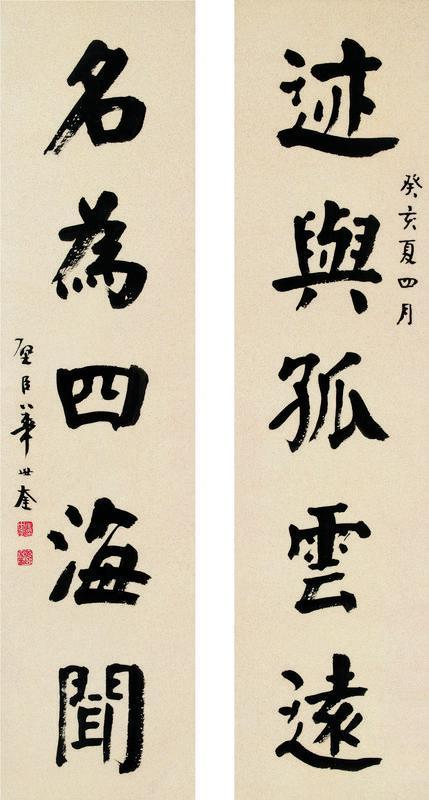 癸亥夏四月
迹與孤雲遠
名為四海聞
璧臣華世奎